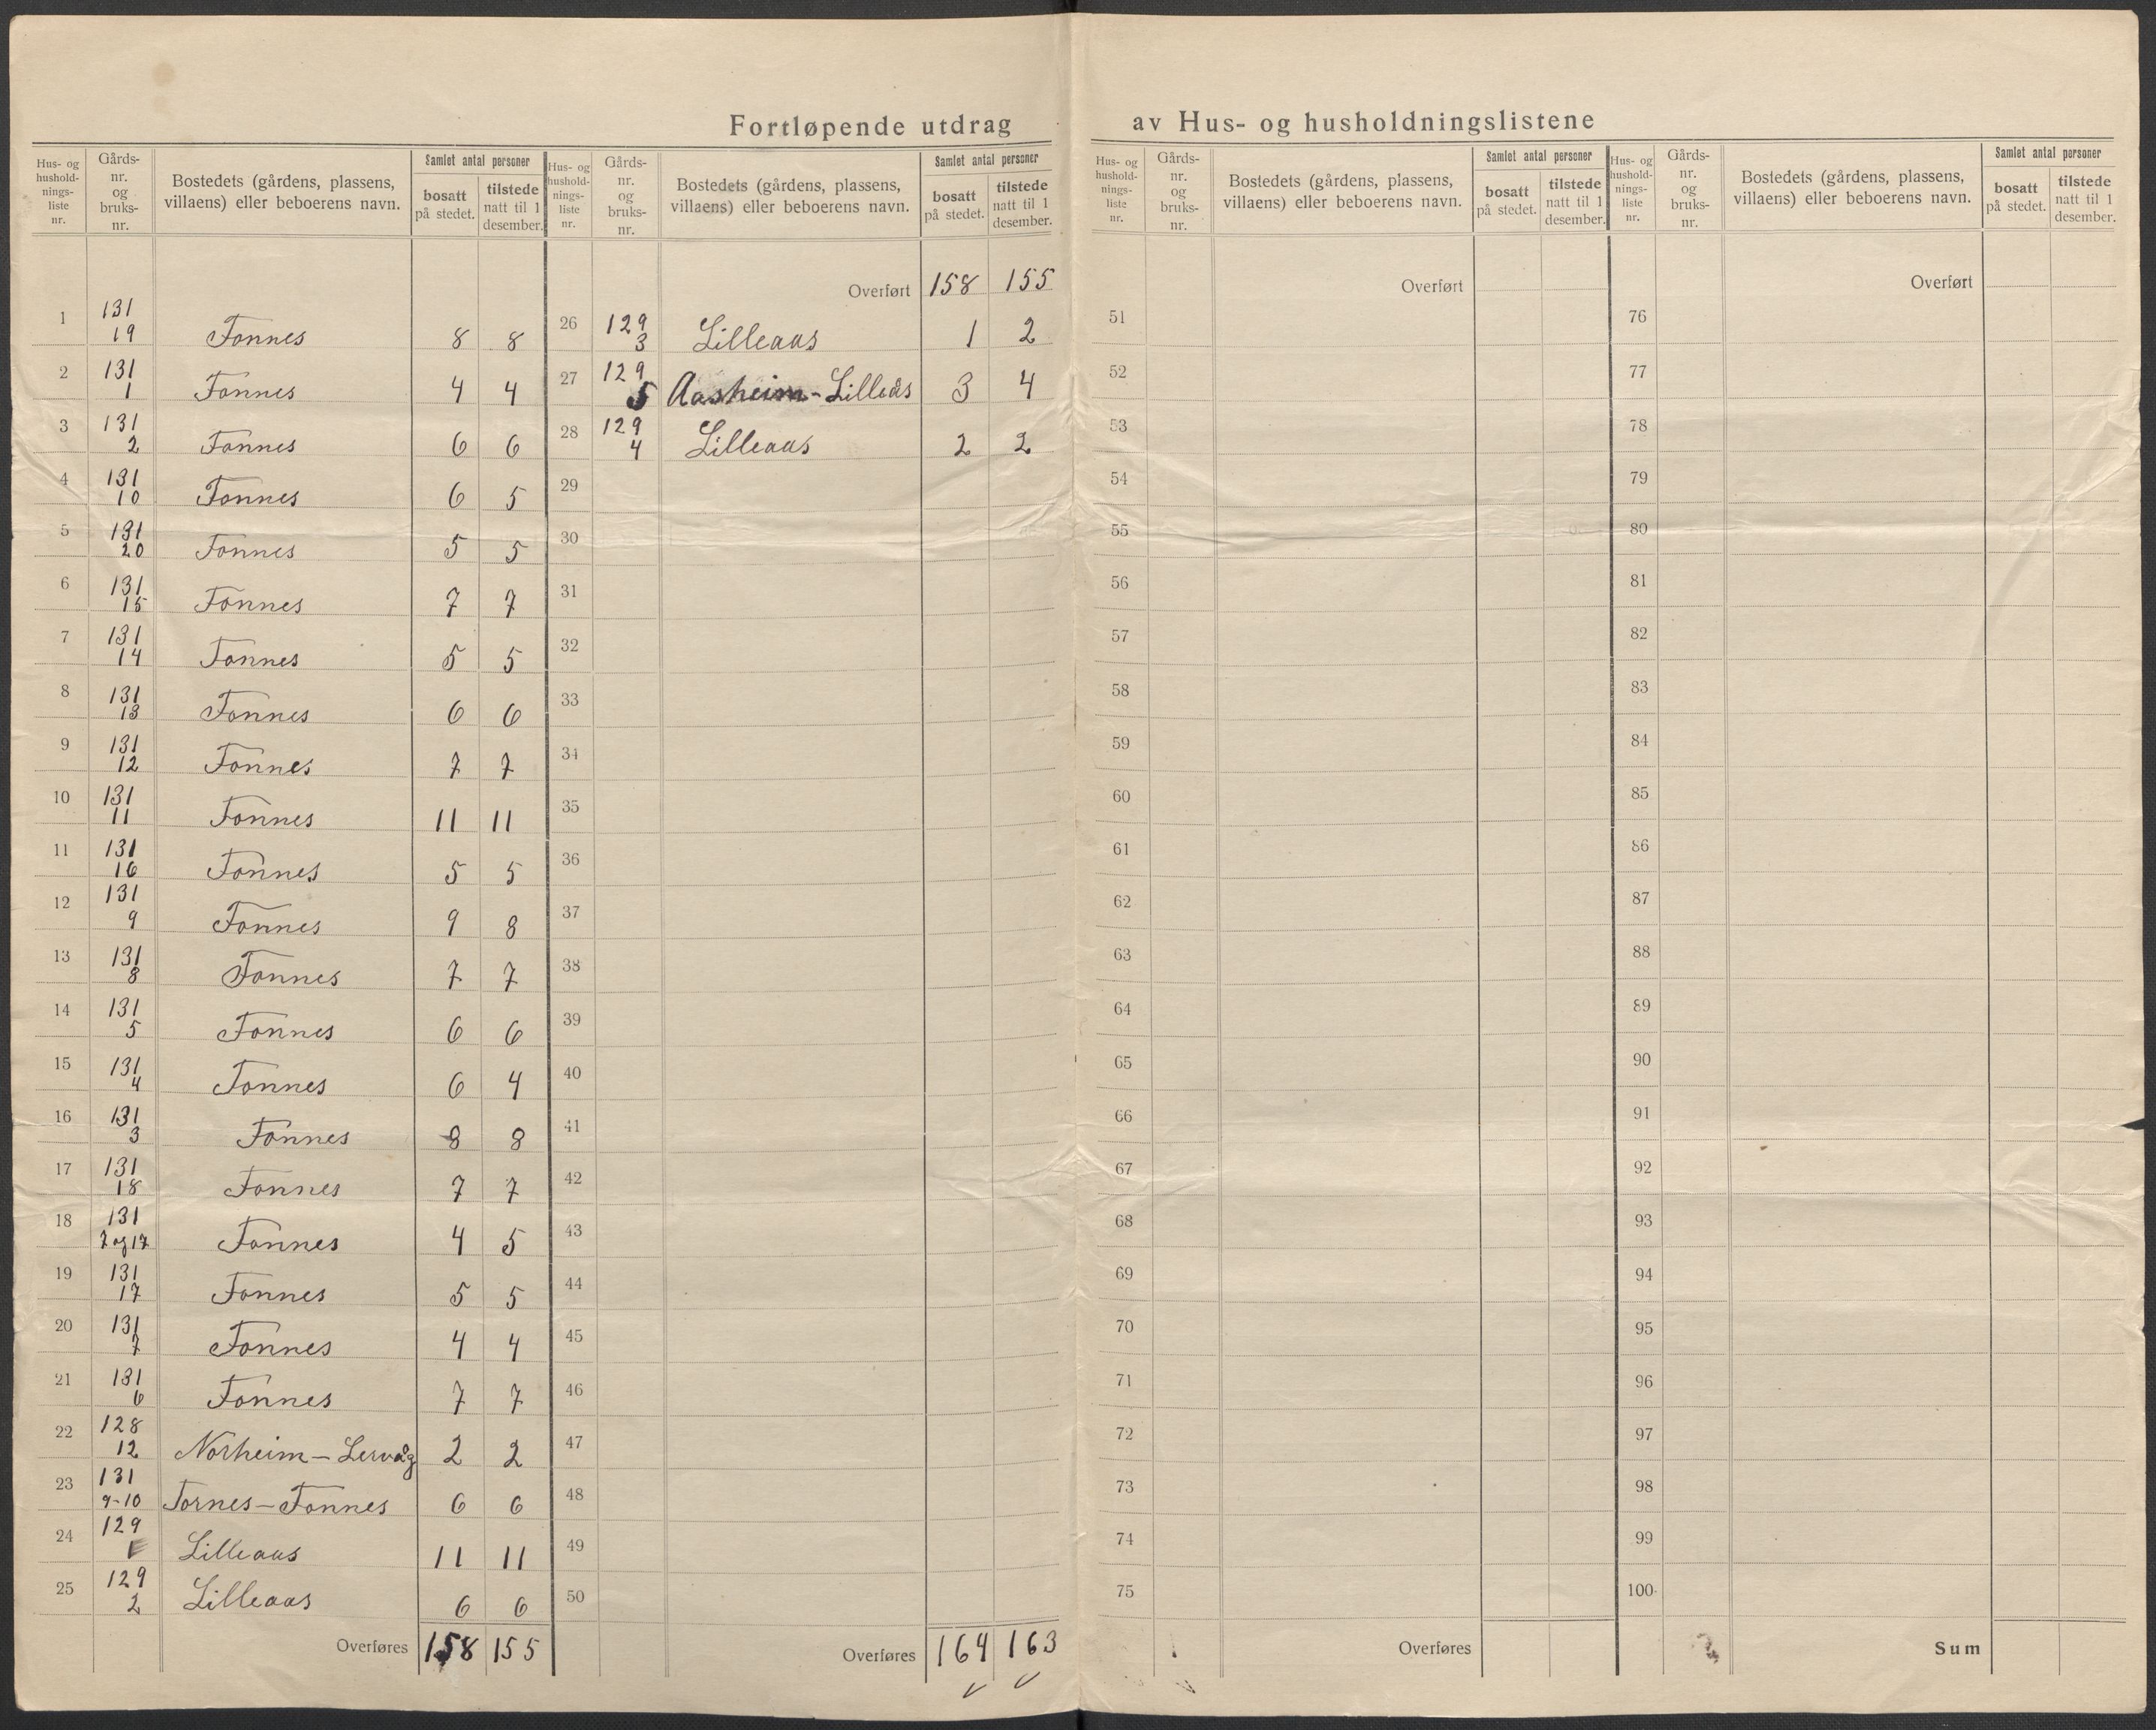 Fortløpende utdrag av Hus- og husholdningslistene
Hus- og hushold-nings-liste nr. Gårds-nr. og bruks-nr. Bostedets (gårdens, plassens, villaens) eller beboerens navn. Samlet antal personer bosatt på stedet. tilstede natt til 1 desember.
1 131 19 Fonnes 8 8
2 131 1 Fonnes 4 4
3 131 2 Fonnes 6 6
4 131 10 Fonnes 6 5
5 131 20 Fonnes 5 5
6 131 15 Fonnes 7 7
7 131 14 Fonnes 5 5
8 131 13 Fonnes 6 6
9 131 12 Fonnes 7 7
10 131 11 Fonnes 11 11
11 131 16 Fonnes 5 5
12 131 9 Fonnes 9 8
13 131 8 Fonnes 7 7
14 131 5 Fonnes 6 6
15 131 4 Fonnes 6 4
16 131 3 Fonnes 8 8
17 131 18 Fonnes 7 7
18 131 7 og 17 Fonnes 4 5
19 131 17 Fonnes 5 5
20 131 7 Fonnes 4 4
21 131 6 Fonnes 7 7
22 128 12 Norheim - Lervåg 2 2
23 131 9-10 Tornes - Fonnes 6 6
24 129 Lilleaas 11 11
25 129 2 Lilleaas 6 6
Overføres 158 155
Hus- og hushold-nings-liste nr. Gårds-nr. og bruks-nr. Bostedets (gårdens, plassens, villaens) eller beboerens navn. Samlet antal personer bosatt på stedet. tilstede natt til 1 desember.
Overført 158 155
26 129 3 Lilleaas 1 2
27 129 5 Aasheim - Lilleås 3 4
28 129 4 Lilleaas 2 2
29
30
31
32
33
34
35
36
37
38
39
40
41
42
43
44
45
46
47
48
49
50
Overføres 164 163
Hus- og hushold-nings-liste nr. Gårds-nr. og bruks-nr. Bostedets (gårdens, plassens, villaens) eller beboerens navn. Samlet antal personer bosatt på stedet. tilstede natt til 1 desember.
Overført
51
52
53
54
55
56
57
58
59
60
61
62
63
64
65
66
67
68
69
70
71
72
73
74
75
Overføres
Hus- og hushold-nings-liste nr. Gårds-nr. og bruks-nr. Bostedets (gårdens, plassens, villaens) eller beboerens navn. Samlet antal personer bosatt på stedet. tilstede natt til 1 desember.
Overført
76
77
78
79
80
81
82
83
84
85
86
87
88
89
90
91
92
93
94
95
96
97
98
99
100
Sum